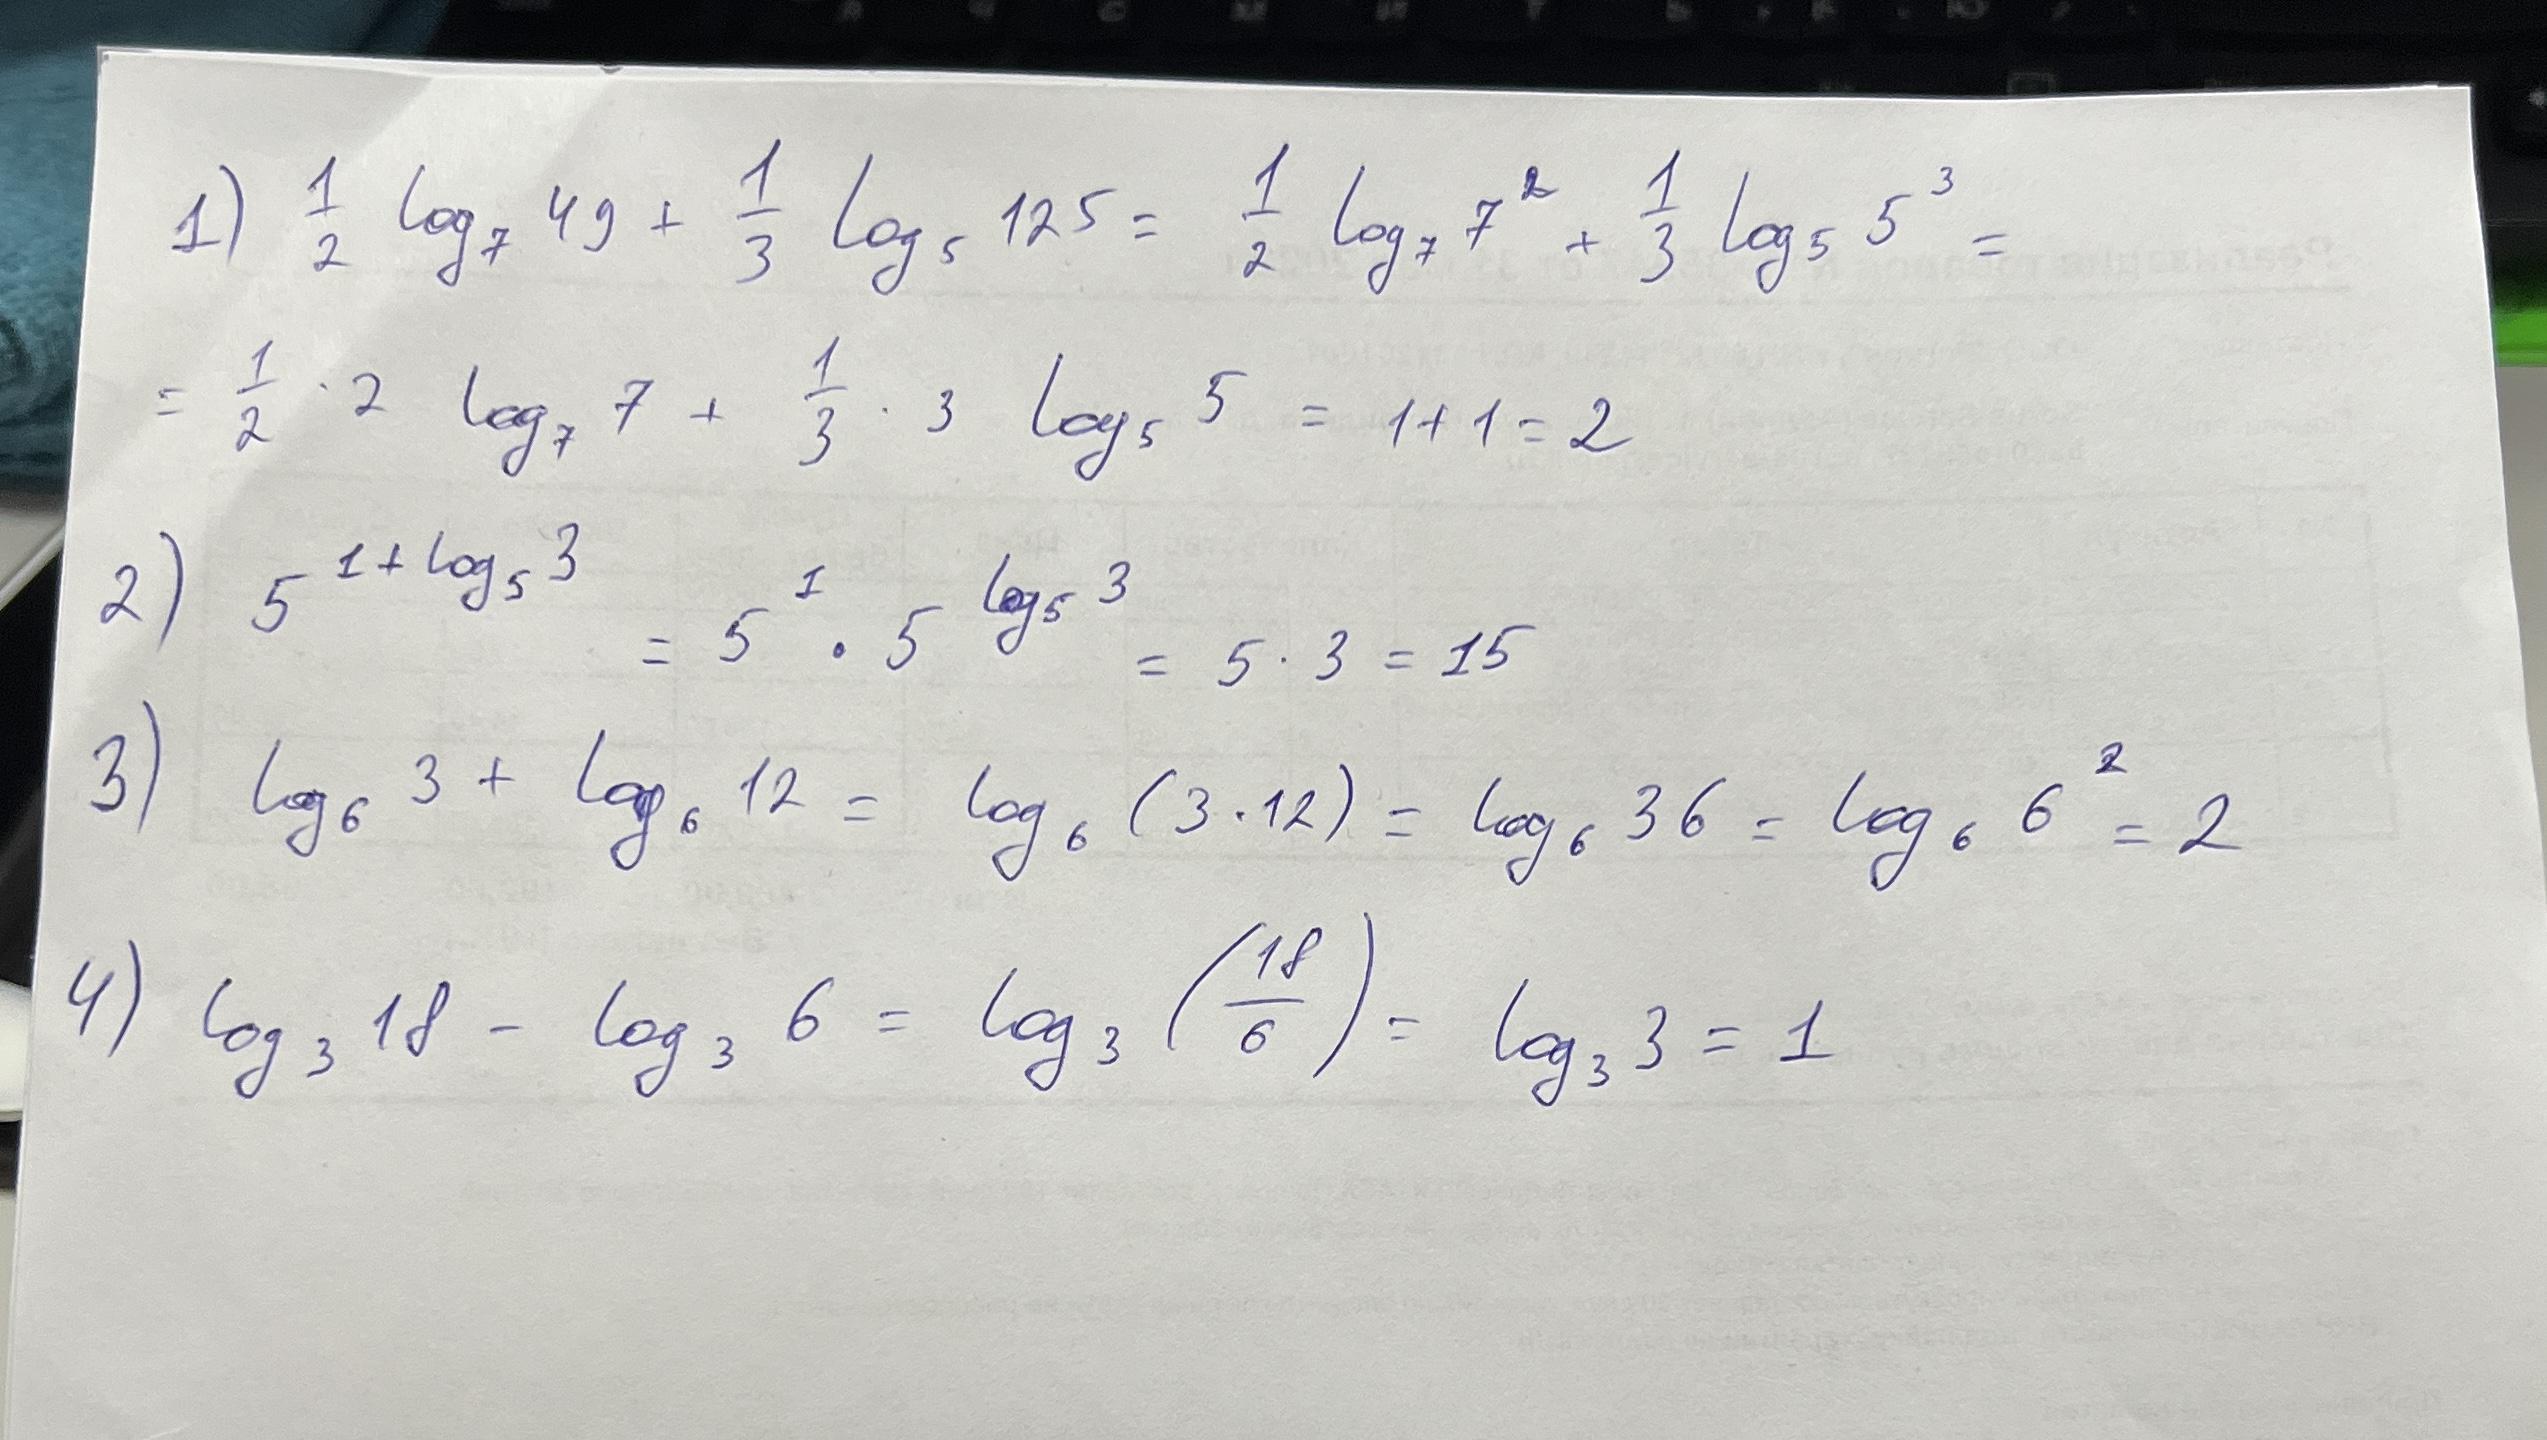 1) 1/2 log₇ 49 + 1/3 log₅ 125 = 1/2 log₇ 7² + 1/3 log₅ 5³ =
= 1/2 · 2 log₇ 7 + 1/3 · 3 log₅ 5 = 1 + 1 = 2
2) 5^(1 + log₅ 3) = 5¹ · 5^(log₅ 3) = 5 · 3 = 15
3) log₆ 3 + log₆ 12 = log₆ (3 · 12) = log₆ 36 = log₆ 6² = 2
4) log₃ 18 - log₃ 6 = log₃ (18/6) = log₃ 3 = 1